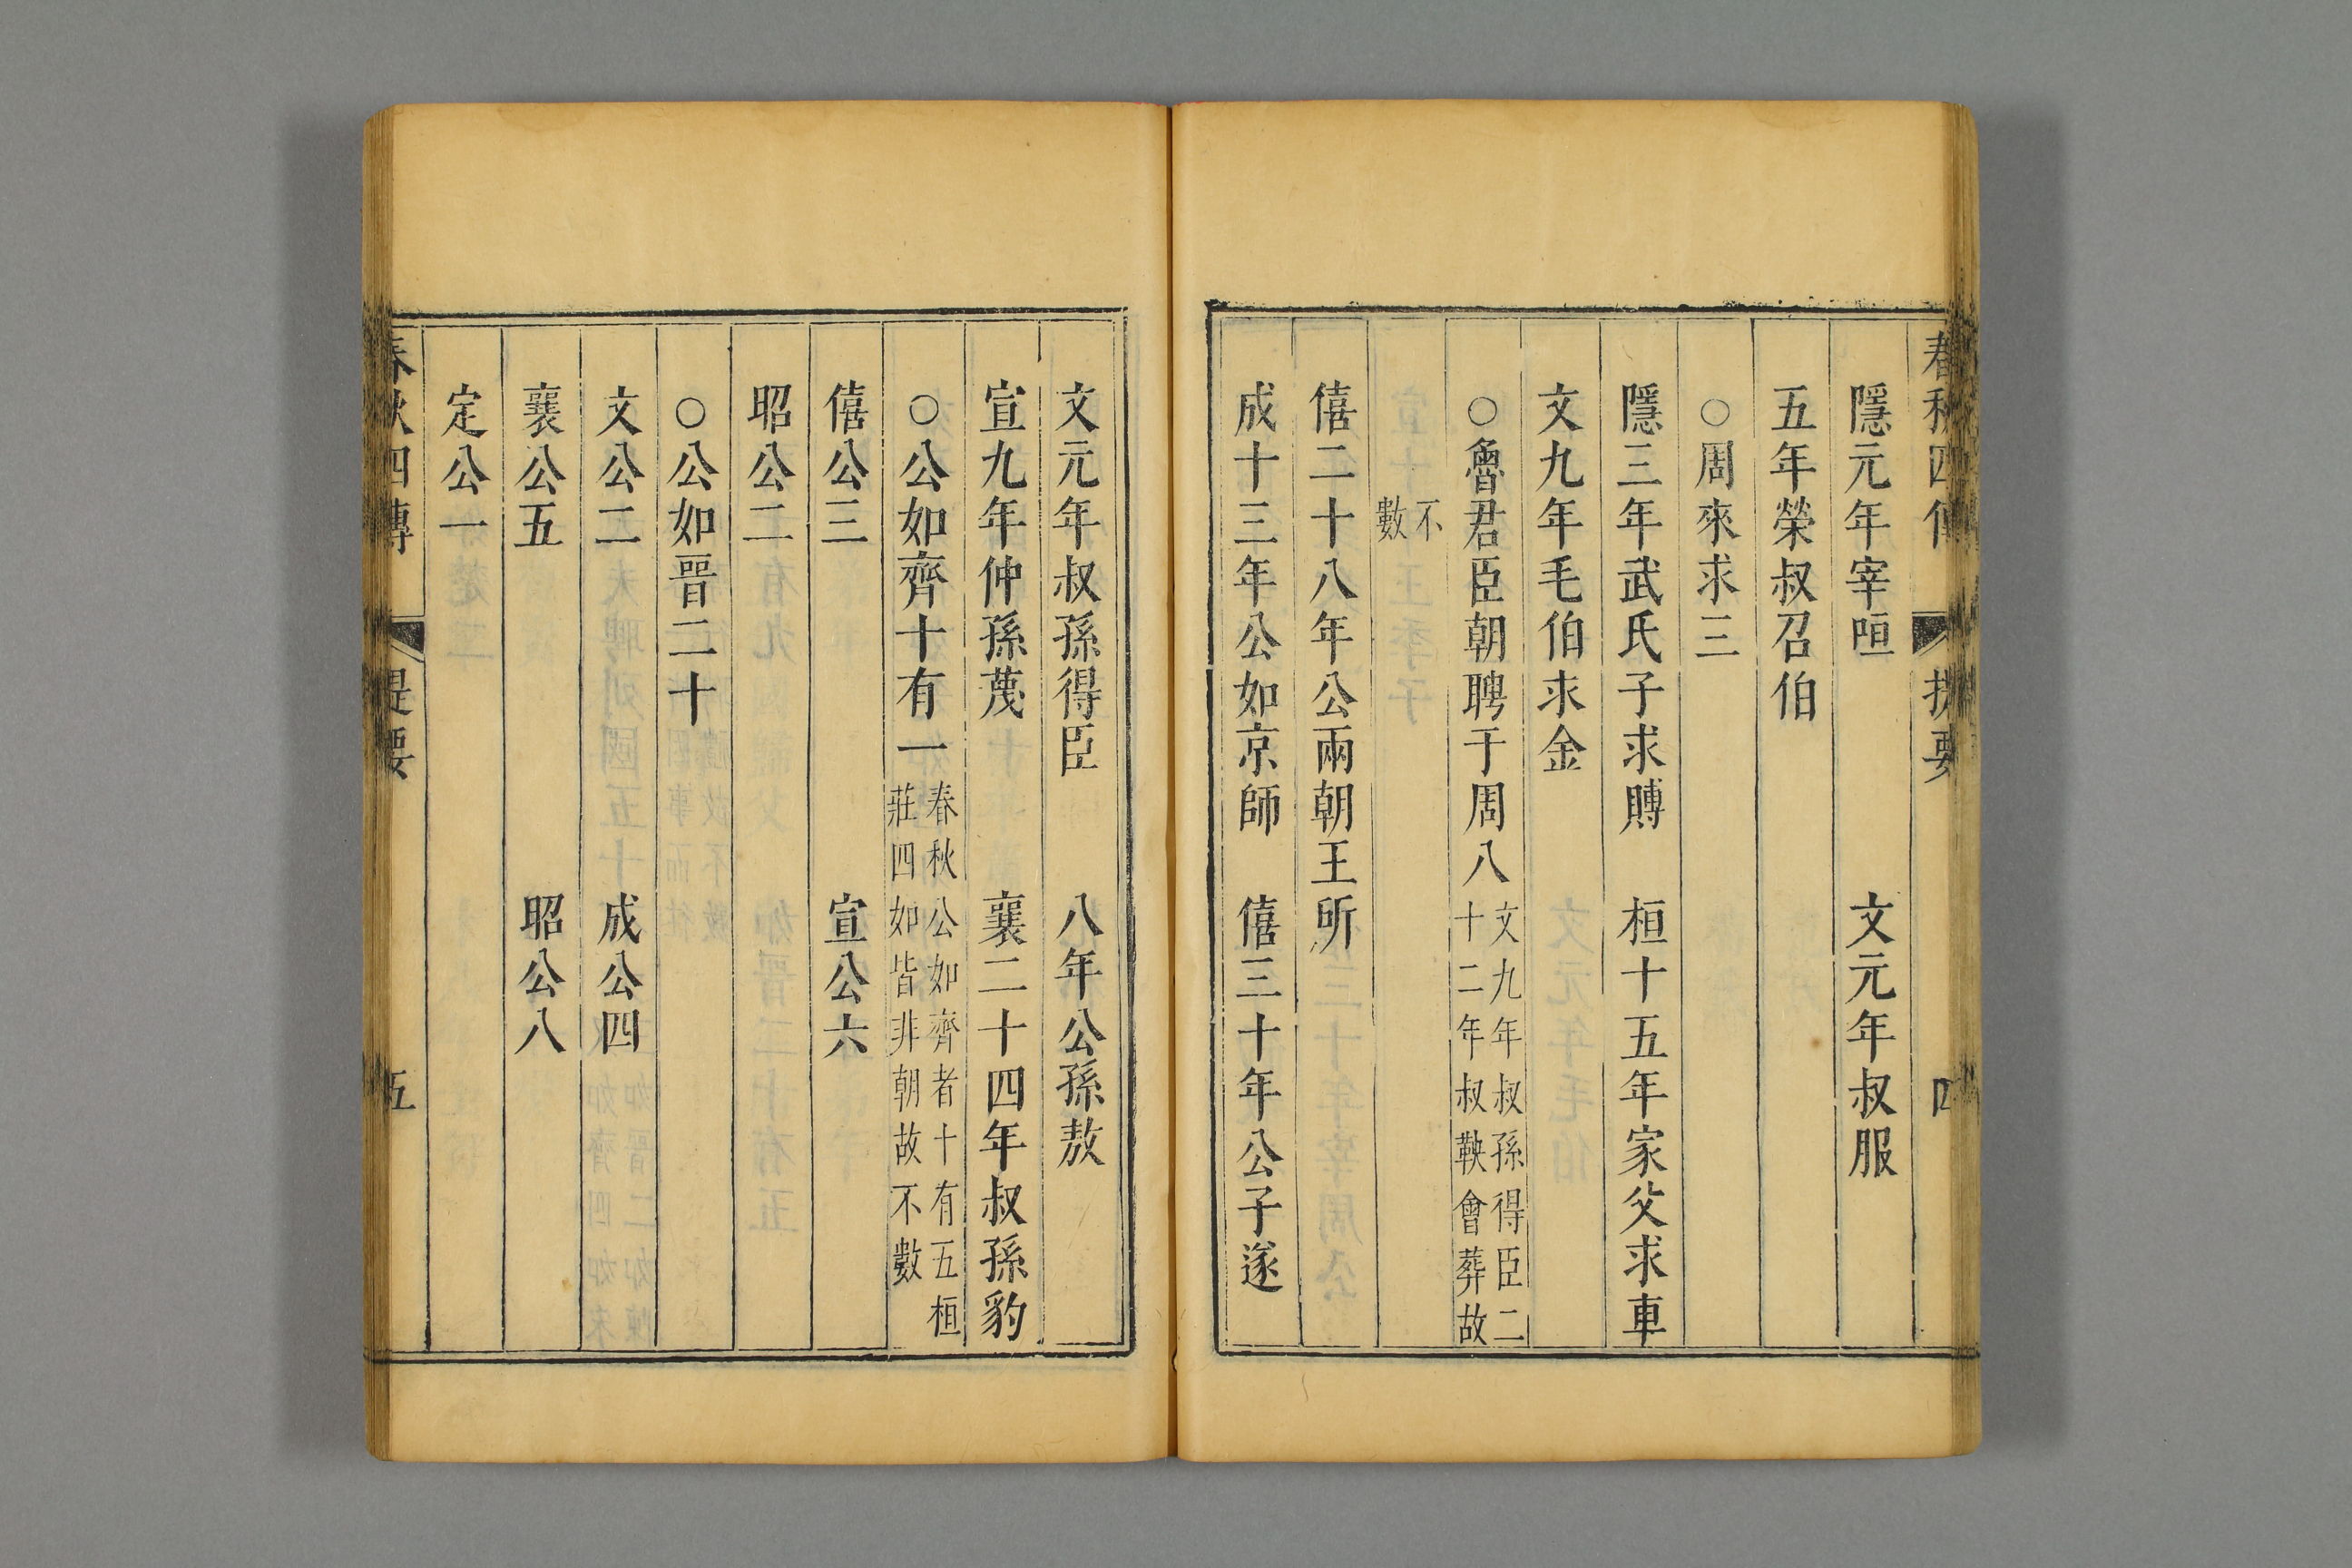 春秋四傳 提要 四
隱元年宰咺 文元年叔服
五年榮叔召伯
○周來求三
隱三年武氏子求賻 桓十五年家父求車
文九年毛伯求金
○魯君臣朝聘于周八
文九年叔孫得臣二
十二年叔鞅會葬故
不
數
僖二十八年公兩朝王所
成十三年公如京師 僖三十年公子遂
文元年叔孫得臣 八年公孫敖
宣九年仲孫蔑 襄二十四年叔孫豹
○公如齊十有一
春秋公如齊者十有五桓
莊四如皆非朝故不數
僖公三 宣公六
昭公二
○公如晉二十
文公二 成公四
襄公五 昭公八
定公一
春秋四傳 提要 五